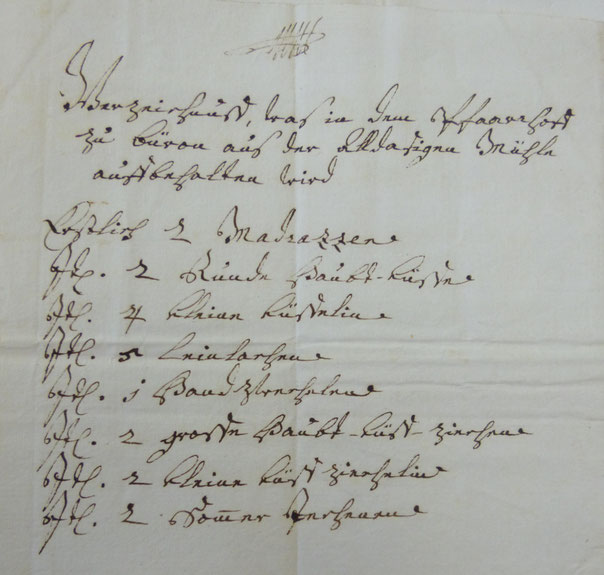 Verzeichnuss, was in dem Pfaarrhoff
zu Büron aus der Alldasigen Mühle
aussbehalten wird
Erstlich 2 Madrazzen
Itl. 2 Runde Haubt-Küsse
Itl. 4 kleine Küsselin
Itl. 5 Leinlachen
Itl. 1 Hand-Zwechelen
Itl. 2 grosse Haubt-Küss-ziechen
Itl. 2 kleine Küss ziechelin
Itl. 2 Som̄er